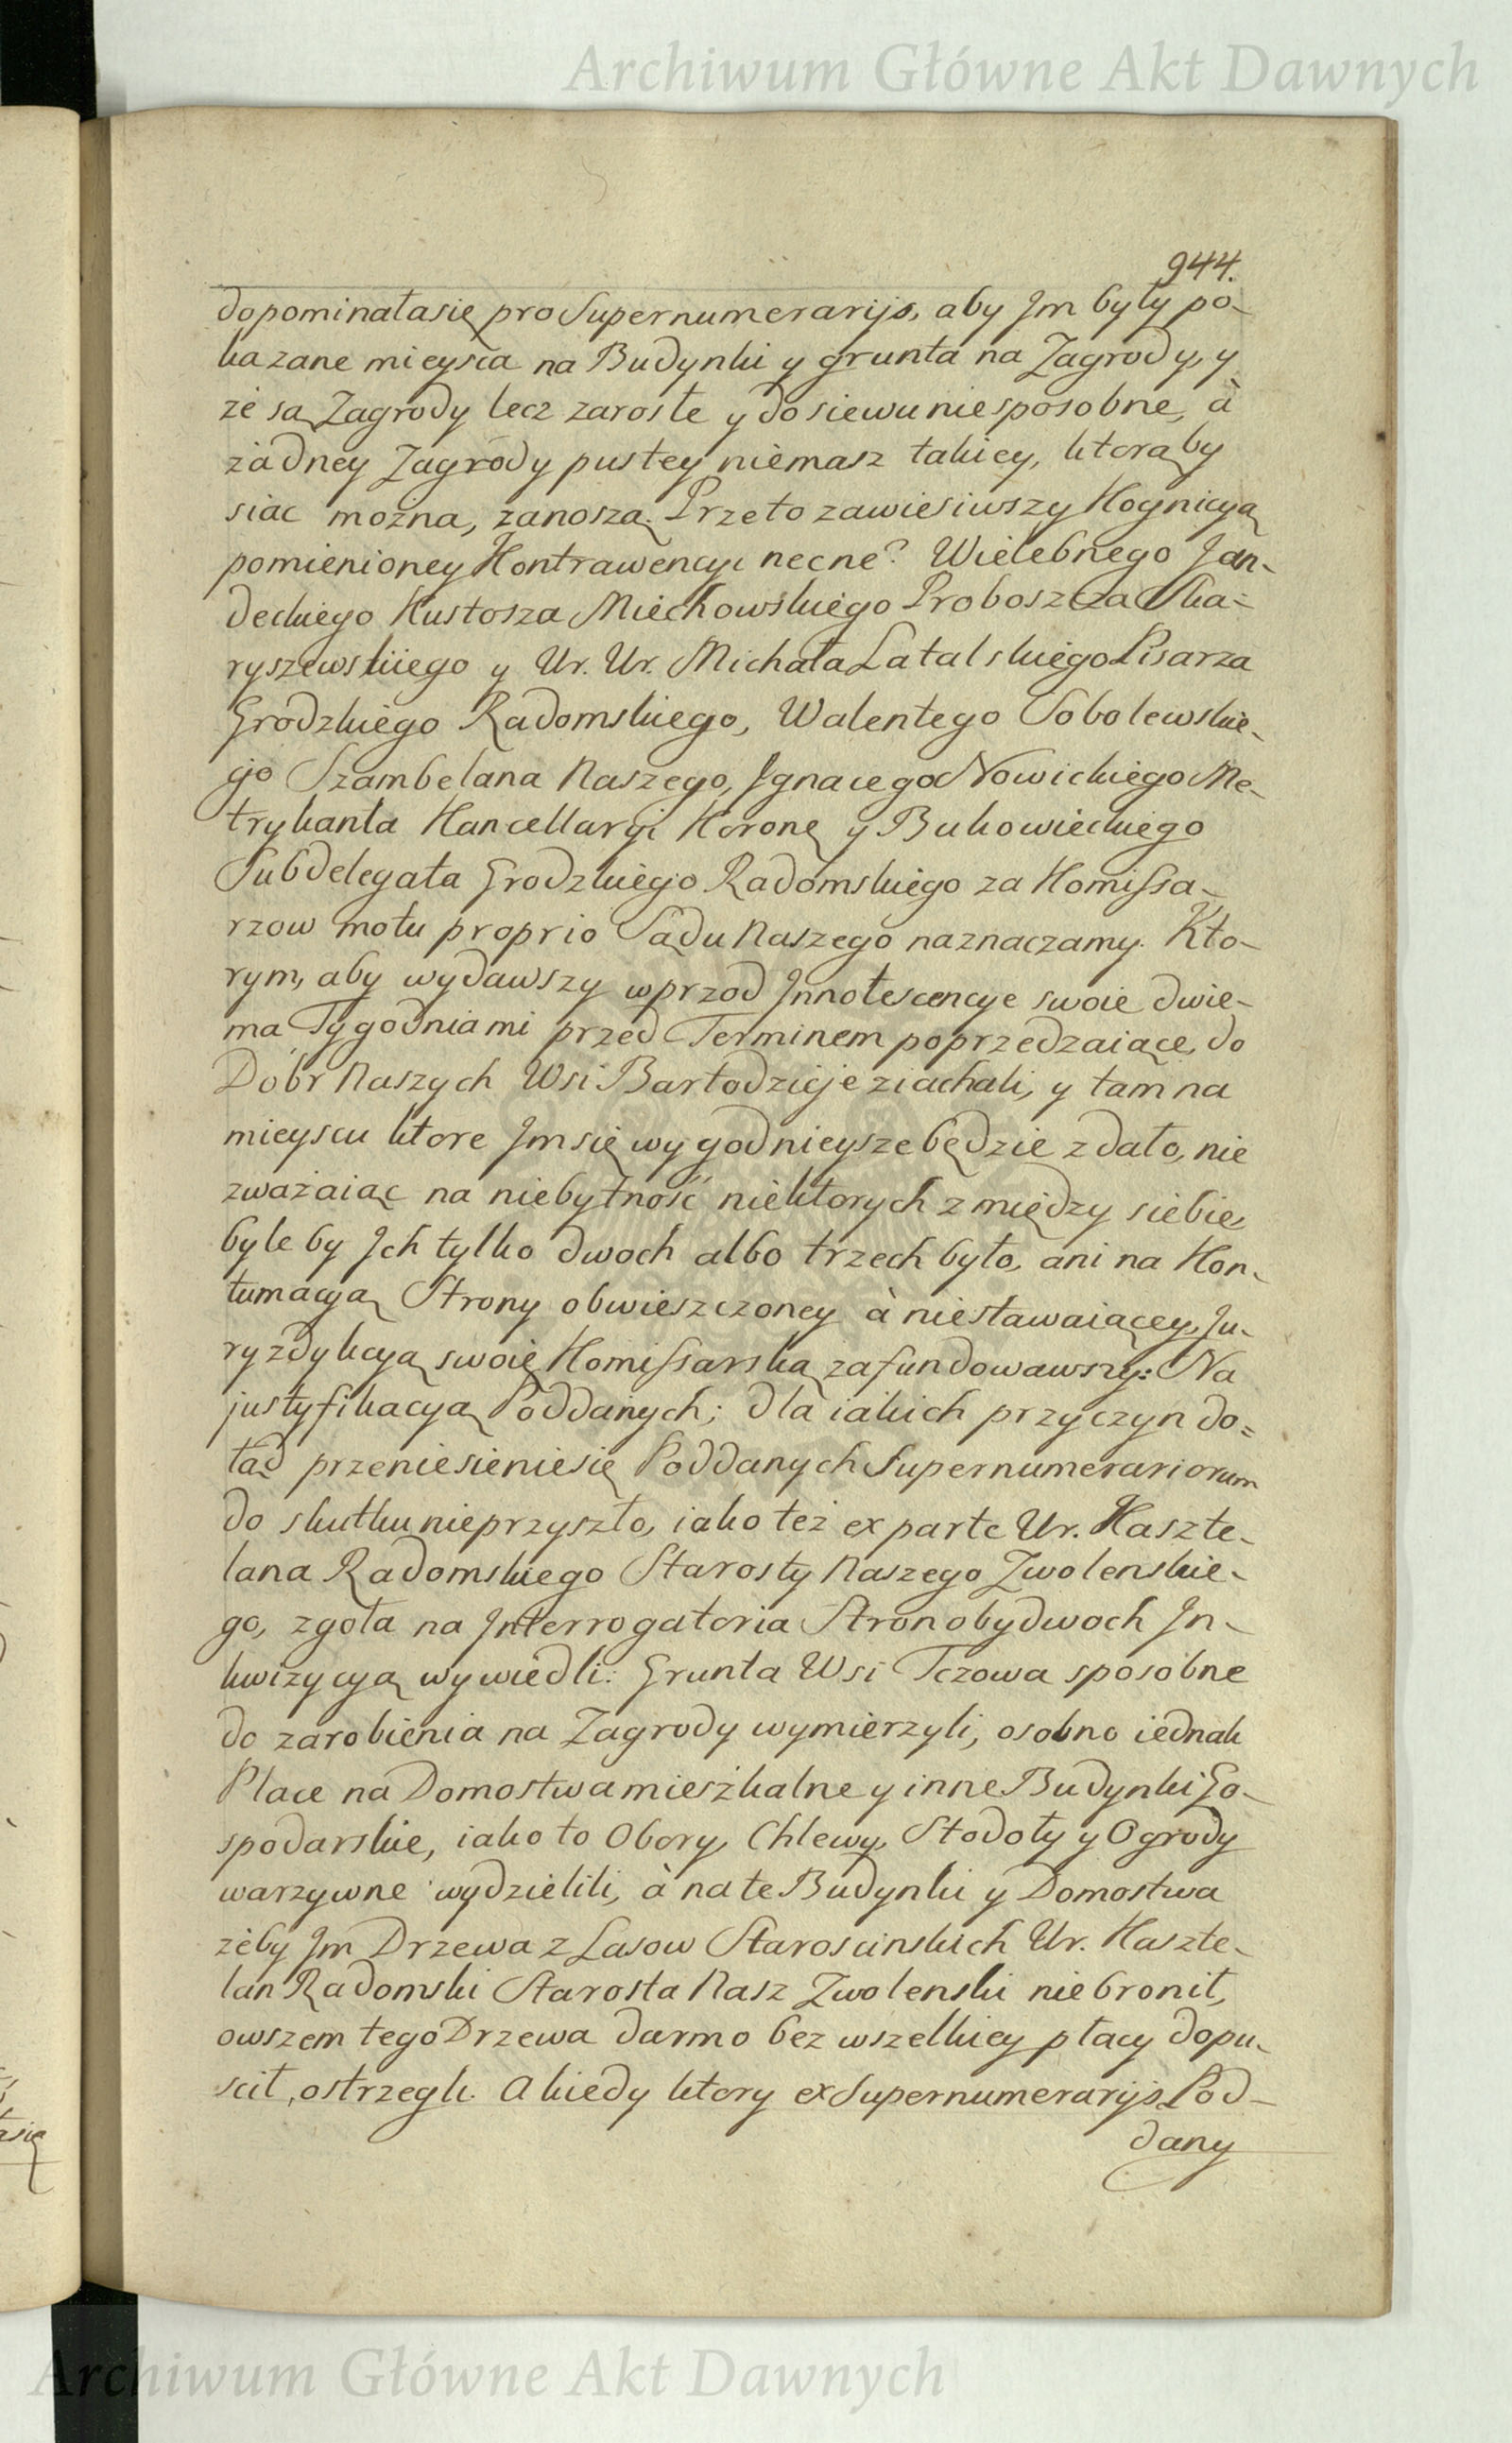 Archiwum Główne Akt Dawnych
944.
dopominała się pro Supernumerarijs, aby Jm były po-
kazane mieysca na Budynki y grunta na Zagrody, y
że są Zagrody lecz zarosłe y do siewu niesposobne, à
żadney Zagrody pustey niemasz takiey, ktorąby
siac można, zanoszą. Przeto zawiesiwszy Kognicyą
pomienioney Kontrawencyi necne? Wielebnego Jan-
deckiego Kustosza Miechowskiego Proboszcza Ska=
ryszewskiego y Ur. Ur. Michała Latalskiego Pisarza
Grodzkiego Radomskiego, Walentego Sobolewskie-
go Szambelana Naszego, Jgnacego Nowickiego Me-
trykanta Kancellaryi Koronę y Bukowieckiego
Subdelegata Grodzkiego Radomskiego za Komissa-
rzow motu proprio Sądu Naszego naznaczamy. Kto-
rym, aby wydawszy wprzod Jnnotescencye swoie dwie-
ma Tygodniami przed Terminem poprzedzaiące, do
Dóbr Naszych Wsi Bartodzieje ziachali, y tam na
mieyscu ktore Jm się wygodnieysze będzie zdało, nie
zważaiąc na niebytność niektorych z między siebie
byle by Jch tylko dwoch albo trzech było, ani na Kon-
tumacyą Strony obwieszczoney à niestawaiącey, Ju-
ryzdykcyą swoię Komissarską zafundowawszy: Na
justyfikacyą Poddanych; dla iakich przyczyn do=
tąd przeniesienie się Poddanych Supernumerariorum
do skutku nieprzyszło, iako też ex parte Ur. Kaszte-
lana Radomskiego Starosty Naszego Zwolenskie-
go, zgoła na Jnterrogatoria Stron obydwoch Jn-
kwizycyą wywiedli: Grunta Wsi Tczowa sposobne
do zarobienia na Zagrody wymierzyli, osobno iednak
Place na Domostwa mieszkalne y inne Budynki Go-
spodarskie, iako to Obory, Chlewy, Stodoły y Ogrody
warzywne wydzielili, à na te Budynki y Domostwa
żeby Jm Drzewa z Lasow Staroscinskich Ur. Kaszte-
lan Radomski Starosta Nasz Zwolenski nie bronił,
owszem tego Drzewa darmo bez wszelkiey płacy dopu-
scił, ostrzegli. A kiedy ktory ex Supernumerarijs Pod-
dany
Archiwum Główne Akt Dawnych